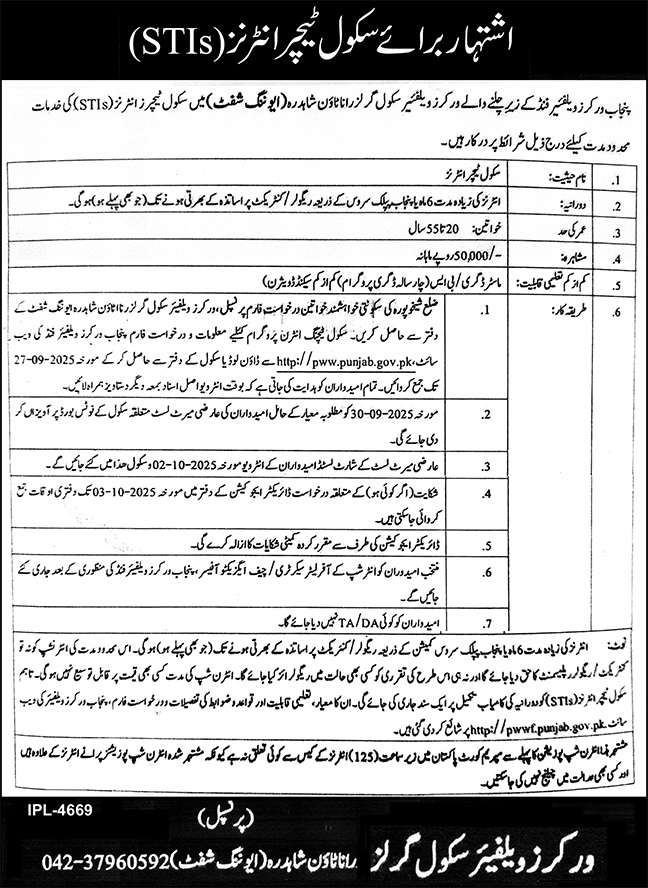 اشتہار برائے سکول ٹیچر انٹرنز (STIs)
پنجاب ورکرز ویلفیئر فنڈ کے زیر چلنے والے ورکرز ویلفیئر سکول گرلز رانا ٹاؤن شاہدرہ (ایوننگ شفٹ) میں سکول ٹیچرز انٹرنز (STIs) کی خدمات
محدود مدت کیلئے درج ذیل شرائط پر درکار ہیں۔
1. نام حیثیت: سکول ٹیچر انٹرنز
2. دورانیہ: انٹرنز کی زیادہ مدت 6 ماہ یا پنجاب پبلک سروس کے ذریعہ ریگولر/کنٹریکٹ پر اساتذہ کے بھرتی ہونے تک (جو بھی پہلے ہو) ہوگی۔
3. عمر کی حد خواتین: 20 تا 55 سال
4. مشاہرہ: 50,000/- روپے ماہانہ
5. کم از کم تعلیمی قابلیت: ماسٹر ڈگری/بی ایس (چار سالہ ڈگری پروگرام) کم از کم سیکنڈ ڈویژن)
6. طریقہ کار: 1. ضلع شیخوپورہ کی سکونتی خواہشمند خواتین درخواست فارم پرنسپل، ورکرز ویلفیئر سکول گرلز رانا ٹاؤن شاہدرہ ایوننگ شفٹ کے
دفتر سے حاصل کریں۔ سکول ٹیچنگ انٹرن پروگرام کیلئے معلومات و درخواست فارم پنجاب ورکرز ویلفیئر فنڈ کی ویب
سائٹ، http://pww.punjab.gov.pk سے ڈاؤن لوڈ یا سکول کے دفتر سے حاصل کر کے مورخہ 27-09-2025
تک جمع کروائیں۔ تمام امیدواران کو ہدایت کی جاتی ہے کہ بوقت انٹرویو اصل اسناد بمعہ دیگر دستاویز ہمراہ لائیں۔
2. مورخہ 30-09-2025 کو مطلوبہ معیار کے حامل امیدواران کی عارضی میرٹ لسٹ متعلقہ سکول کے نوٹس بورڈ پر آویزاں کر
دی جائے گی۔
3. عارضی میرٹ لسٹ کے شارٹ لسٹڈ امیدواران کے انٹرویو مورخہ 02-10-2025 و سکول ھذا میں کئے جائیں گے۔
4. شکایت (اگر کوئی ہو) کے متعلقہ درخواست ڈائریکٹر ایجوکیشن کے دفتر میں مورخہ 03-10-2025 تک دفتری اوقات جمع
کروائی جا سکتی ہیں۔
5. ڈائریکٹر ایجوکیشن کی طرف سے مقرر کردہ کمیٹی شکایات کا ازالہ کرے گی۔
6. منتخب امیدوران کو انٹرشپ کے آفر لیٹر سیکرٹری/چیف ایگزیکٹو آفیسر، پنجاب ورکرز ویلفیئر فنڈ کی منظوری کے بعد جاری کئے
جائیں گے۔
7. امیدواران کو کوئی TA/DA نہیں دیا جائے گا۔
نوٹ: انٹرنز کی زیادہ مدت 6 ماہ یا پنجاب پبلک سروس کمیشن کے ذریعہ ریگولر/کنٹریکٹ پر اساتذہ کے بھرتی ہونے تک (جو بھی پہلے ہو) ہوگی۔ اس محدود مدت کی انٹرنشپ کو نہ تو
کنٹریکٹ/ریگولر رپلیسمنٹ کا حق دیا جائے گا اور نہ ہی اس طرح کی تقرری کو کسی بھی حالت میں ریگولرائز کیا جائے گا۔ انٹرن شپ کی مدت کسی بھی قیمت پر قابل توسیع نہیں ہوگی۔ تاہم
سکول ٹیچر انٹرنز (STIs) کو دورانیہ کی کامیاب تکمیل پر ایک سند جاری کی جائے گی۔ ان کا معیار، تعلیمی قابلیت اور قواعد و ضوابط کی تفصیلات و درخواست فارم، پنجاب ورکرز ویلفیئر کی ویب
سائٹ http://pwwf.punjab.gov.pk پر شائع کر دی گئی ہیں۔
مشتہر ہذا انٹرن شپ پوزیشن کا پہلے سے سپریم کورٹ پاکستان میں زیر سماعت (125) انٹرنز کے کیس سے کوئی تعلق نہ ہے کیونکہ مشتہر شدہ انٹرن شپ پوزیشنز پرانے انٹرنز کے علاوہ ہیں
اور کسی بھی عدالت میں چیلنج نہیں کی جا سکتیں۔
IPL-4669
(پرنسپل)
ورکرز ویلفیئر سکول گرلز رانا ٹاؤن شاہدرہ (ایوننگ شفٹ) 042-37960592